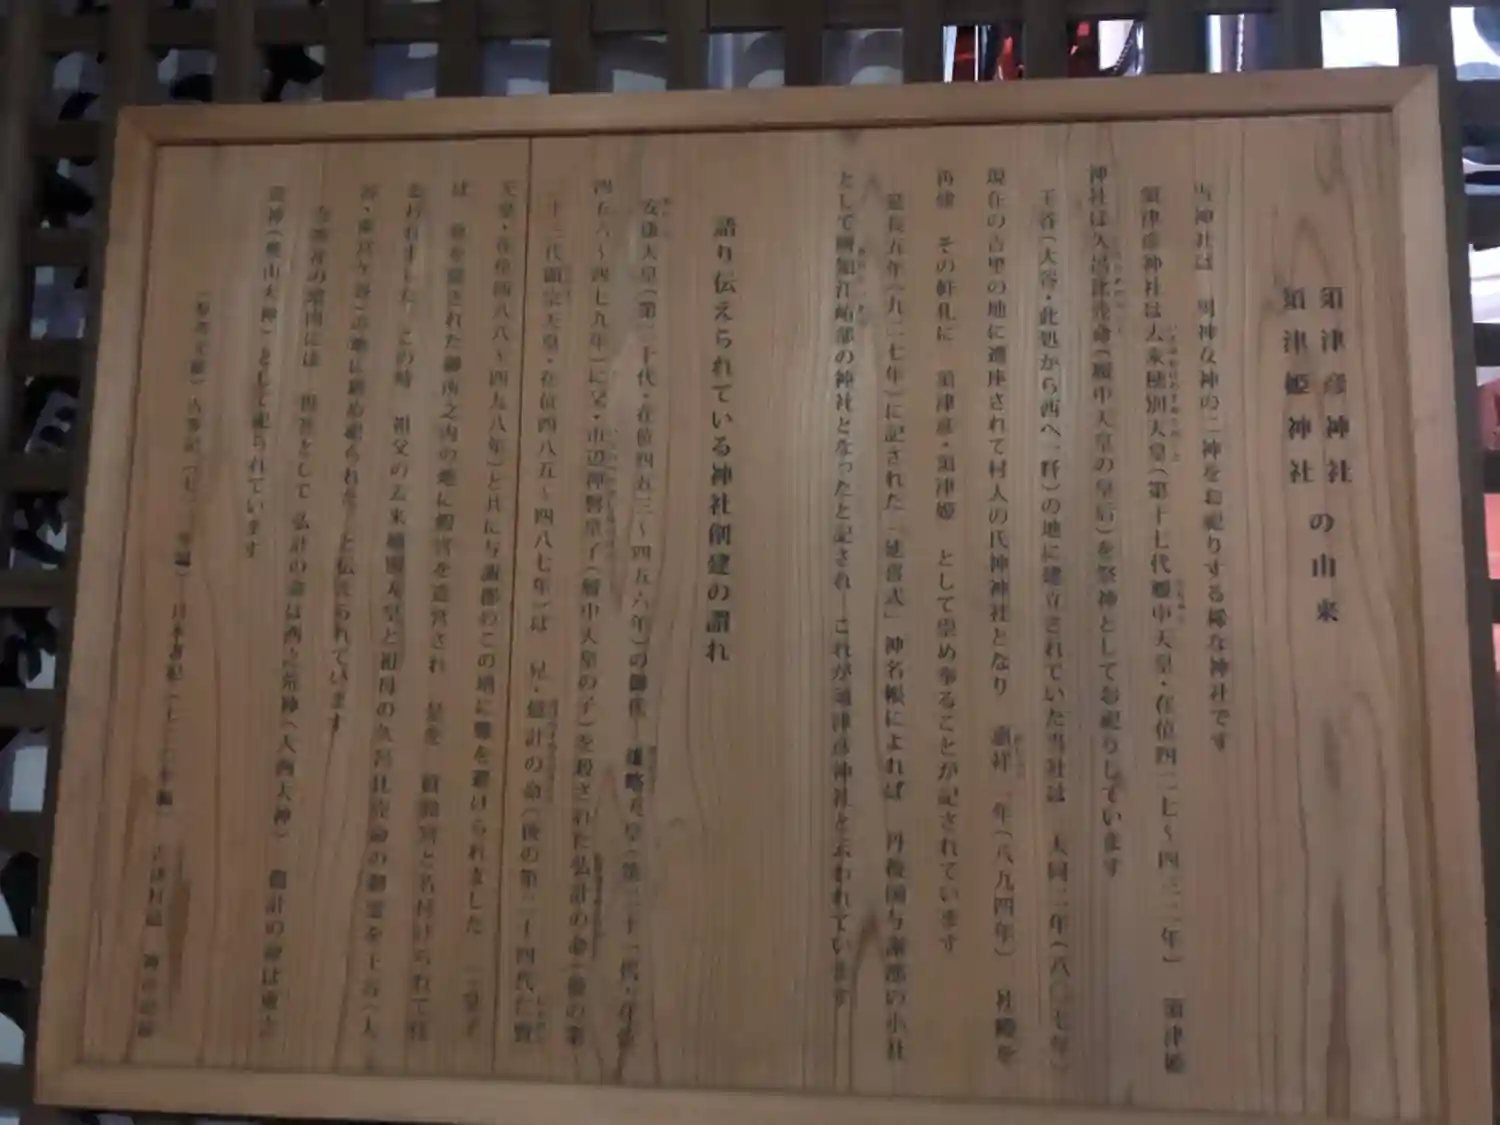 須津彦神社
須津姫神社
の由来
当神社は 男神女神の二神をお祀りする稀な神社です
須津彦神社は去来穂別天皇(第十七代履中天皇・在位四二七～四三二年) 須津姫
神社は久呂比売命(履中天皇の皇后)を祭神としてお祀りしています
王谷(大谷・此処から西へ一粁)の地に建立されていた当社は 大同二年(八〇七年)
現在の古里の地に遷座されて村人の氏神神社となり 年(八九四年) 社殿を
再建 その軒札に 須津彦・須津姫 として崇め奉ることが記されています
延長五年(九二七年)に記された「延喜式」神名帳によれば 丹後国与謝郡の小社
として 部の神社となったと記され これが須津彦神社と云われています
語り伝えられている神社創建の謂れ
安康天皇(第二十代・在位四五三～四五六年)の御後 雄略天皇(第二十一代・在位
四五六～四七九年)に父・市辺押磐皇子(履中天皇の子)を殺された弘計の命(後の第
二十三代顕宗天皇・在位四八五～四八七年)は 兄・億計の命(後の第二十四代仁賢
天皇・在位四八八～四九八年)と共に与謝郡のこの地に難を避けられました 二皇子
は 身を隠された御所之内の地に假宮を造営され 是を と名付けられて
ました この時 祖父の去来穂別天皇と祖母の久呂比売命の御霊を王谷(大
谷・ )の地に鎮め祀られた と伝えられています
の境内には 摂社として 弘計の命は西之荒神(大西大神) 億計の命は東之
荒神(奥山大神)として祀られています
(参考文献)古事記(七一二年編) 日本書紀(七二〇年編) 吉津村誌